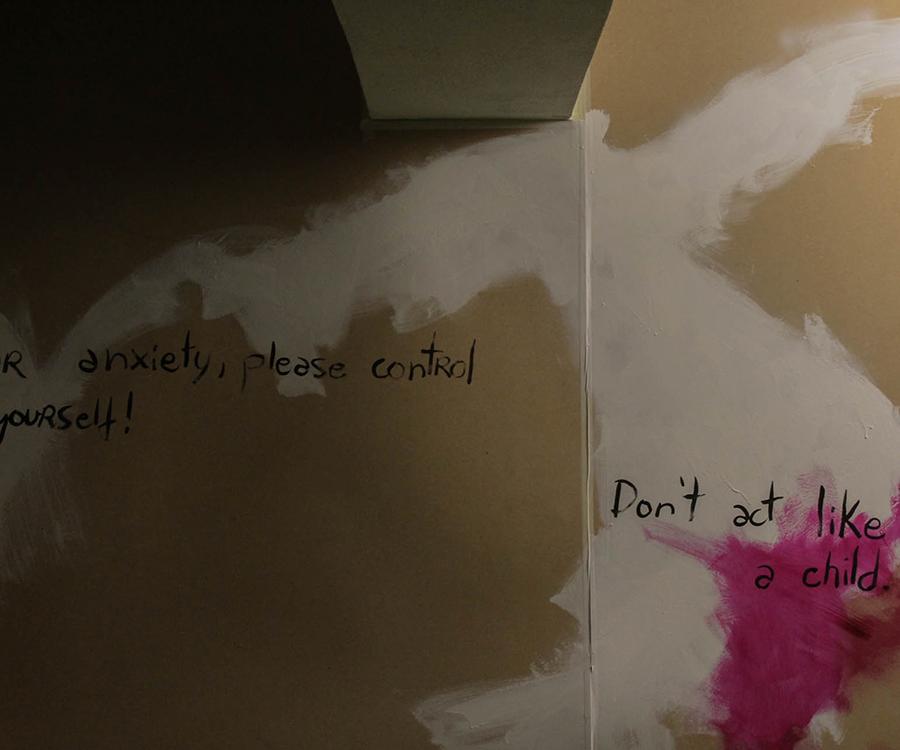 anxiety, please control
yourself!
Don't act like
a child.